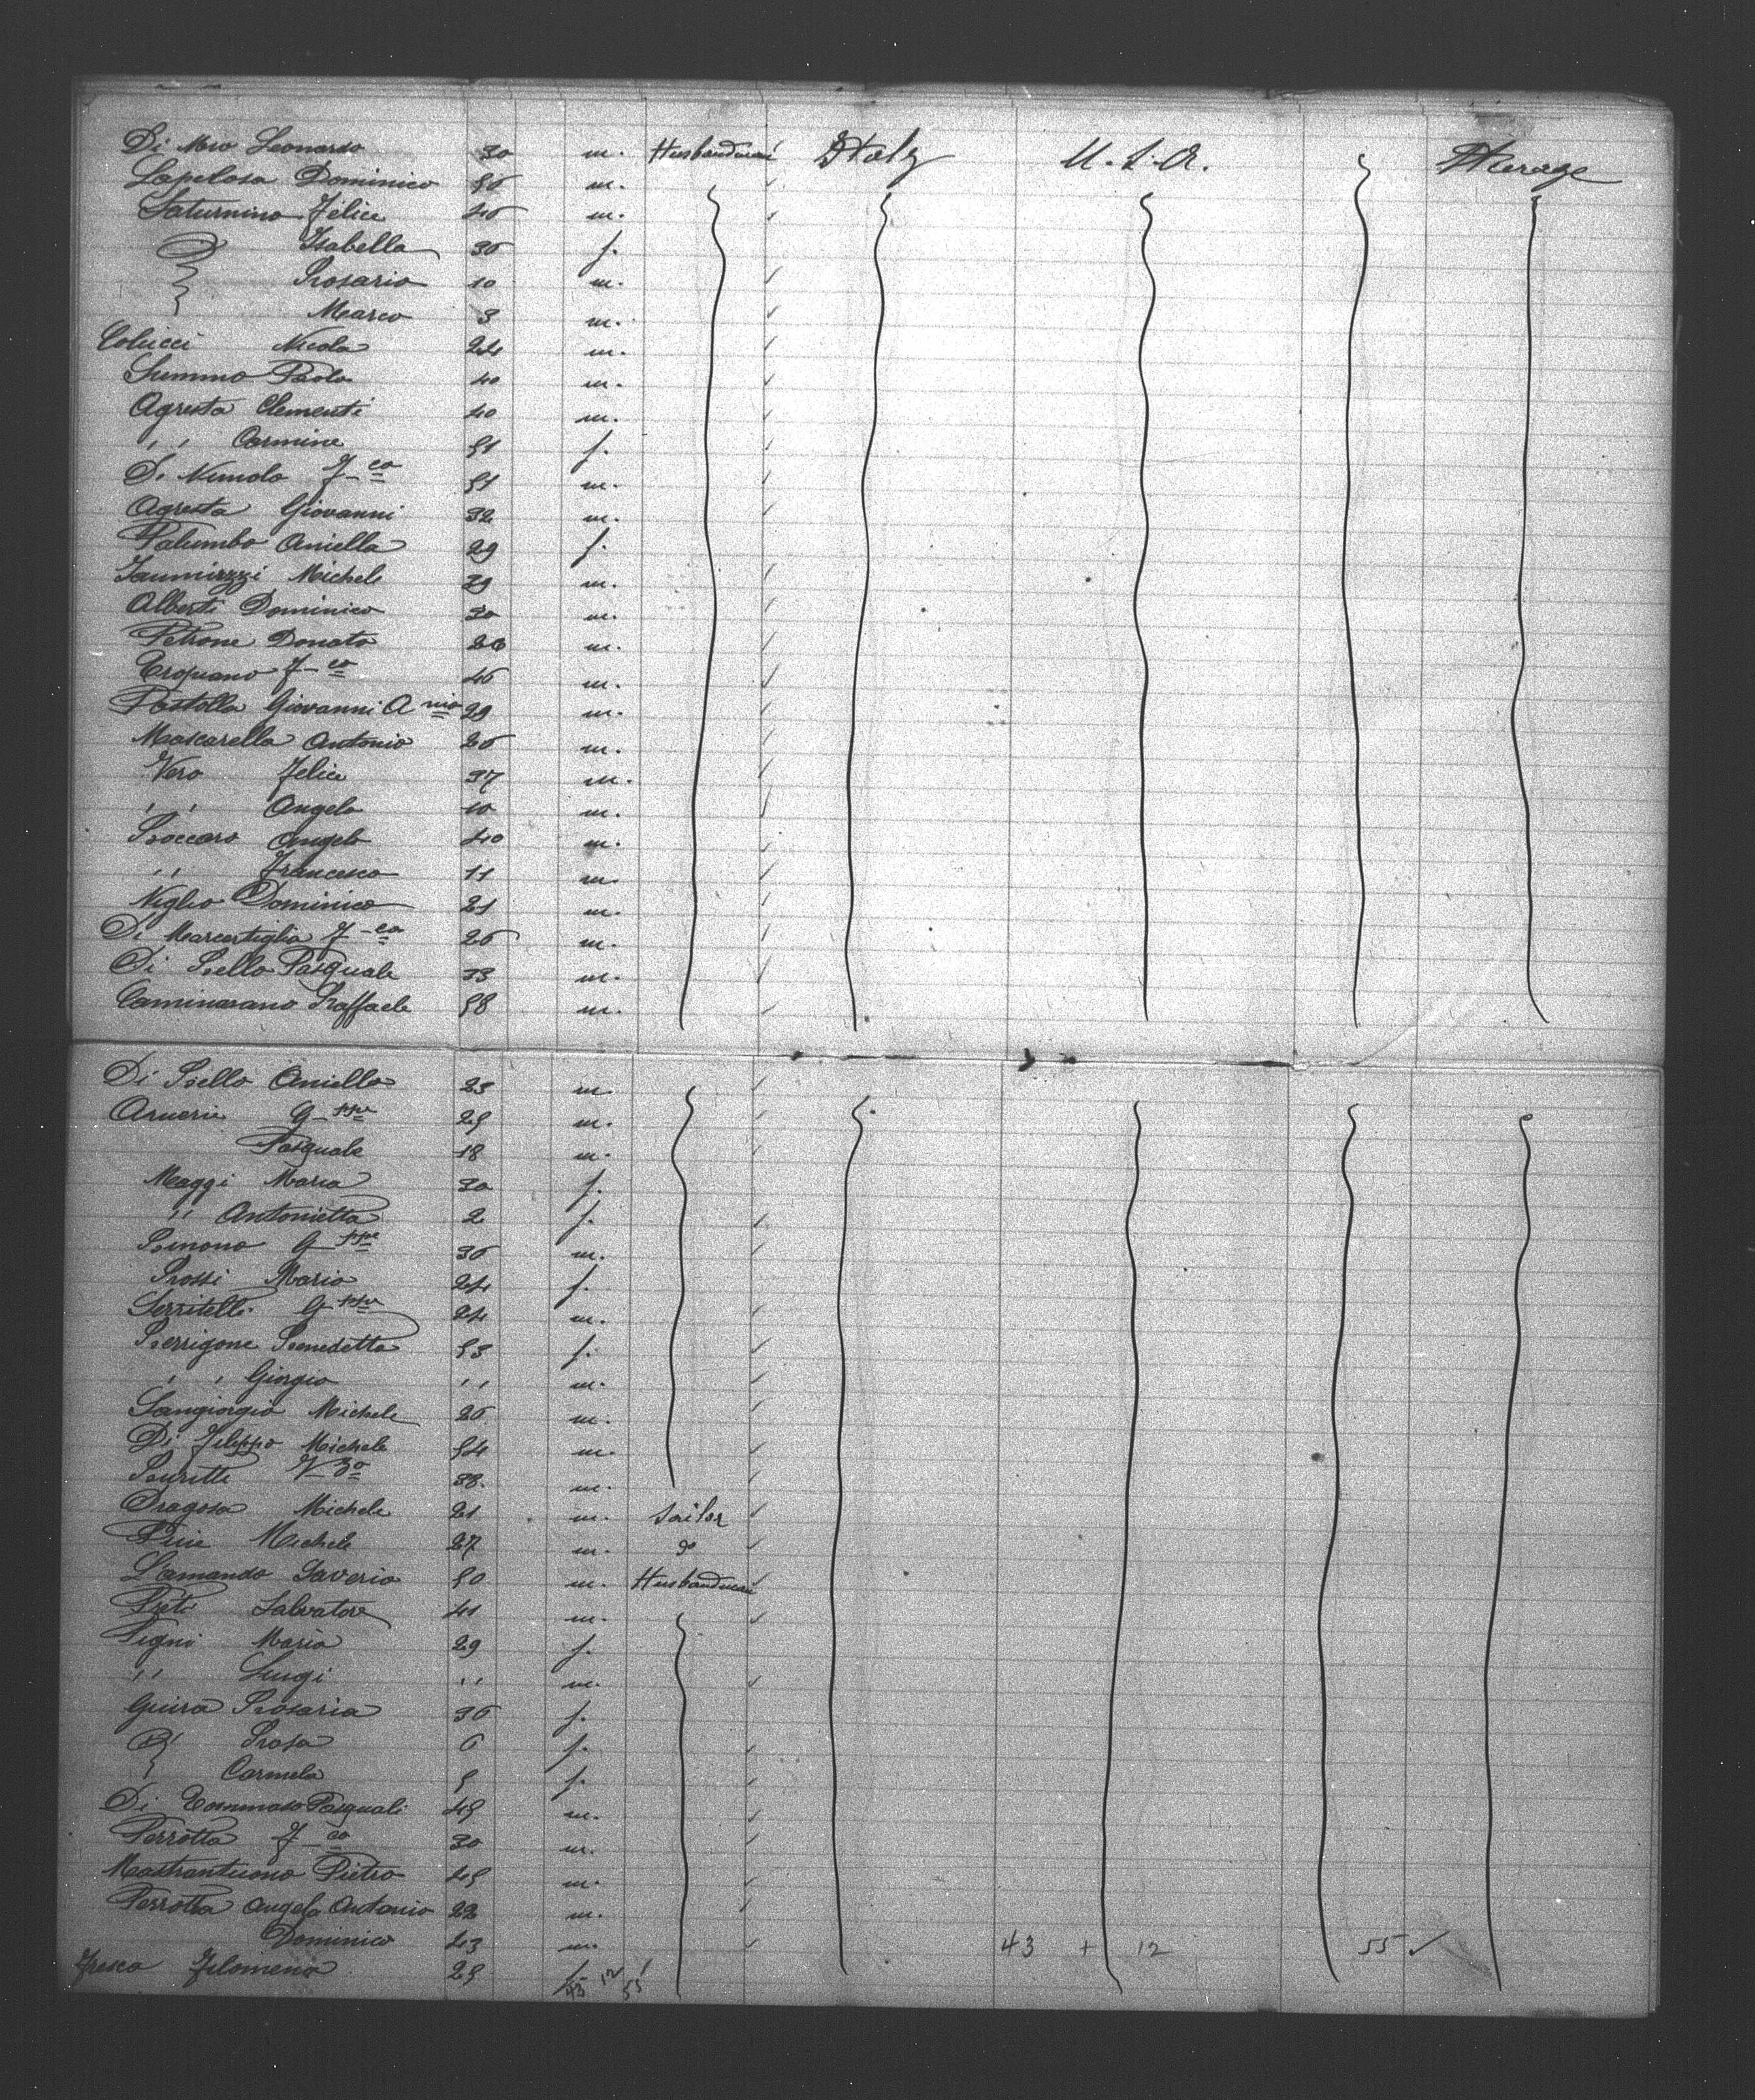 Di Meo Leonardo 30 m. Husbandman Italy U.S.A. Steerage
Lapelosa Dominico 56 m.
Saturnino Felice 46 m.
Isabella 36 f.
Rosario 10 m.
Marco 3 m.
Colucci Nicola 24 m.
Summo Paolo 40 m.
Agresta Clementi 40 m.
,, Carmine 51 f.
F-co 51 m.
Agresta Giovanni 32 m.
Palumbo Aniella 29 f.
Michele 39 m.
Alberti Dominico 30 m.
Petrone Donato 26 m.
F-co 46 m.
Giovanni A nio 29 m.
Mascarella Antonio 26 m.
Vero Felice 37 m.
,, Angelo 10 m.
Boccaro Angelo 40 m.
,, Francesco 11 m.
Niglio Dominico 21 m.
Di F-co 26 m.
Di Bello Pasquale 33 m.
Caminarano Raffaele 58 m.
Di Bello Aniello 23 m.
G-ppe 25 m.
Pasquale 18 m.
Maggi Maria 30 f.
,, Antonietta 2 f.
Bonono G-ppe 36 m.
Rossi Maria 24 f.
Serritelli G-ppe 24 m.
Berrigone Benedetta 53 f.
,, Giorgio ,, m.
Sangiorgio Michele 26 m.
Di Filippo Michele 54 m.
V-zo 38. m.
Dragosa Michele 21 m. sailor
Michele 27 m. do
L'amando Saverio 50 m. Husbandman
Preti Salvatore 41 m.
Pigni Maria 29 f.
,, Luigi ,, m.
Guira Rosaria 36 f.
Rosa 6 f.
Carmela 5 f.
Di Tommaso Pasquali 45 m.
Perrotta F-co 30 m.
Mastrantuono Pietro 45 m.
Perrotta Angelo Antonio 22 m.
Dominico 43 m. 43 + 12 55 ✓
Fresca Filomena 25 f. 43 12 55